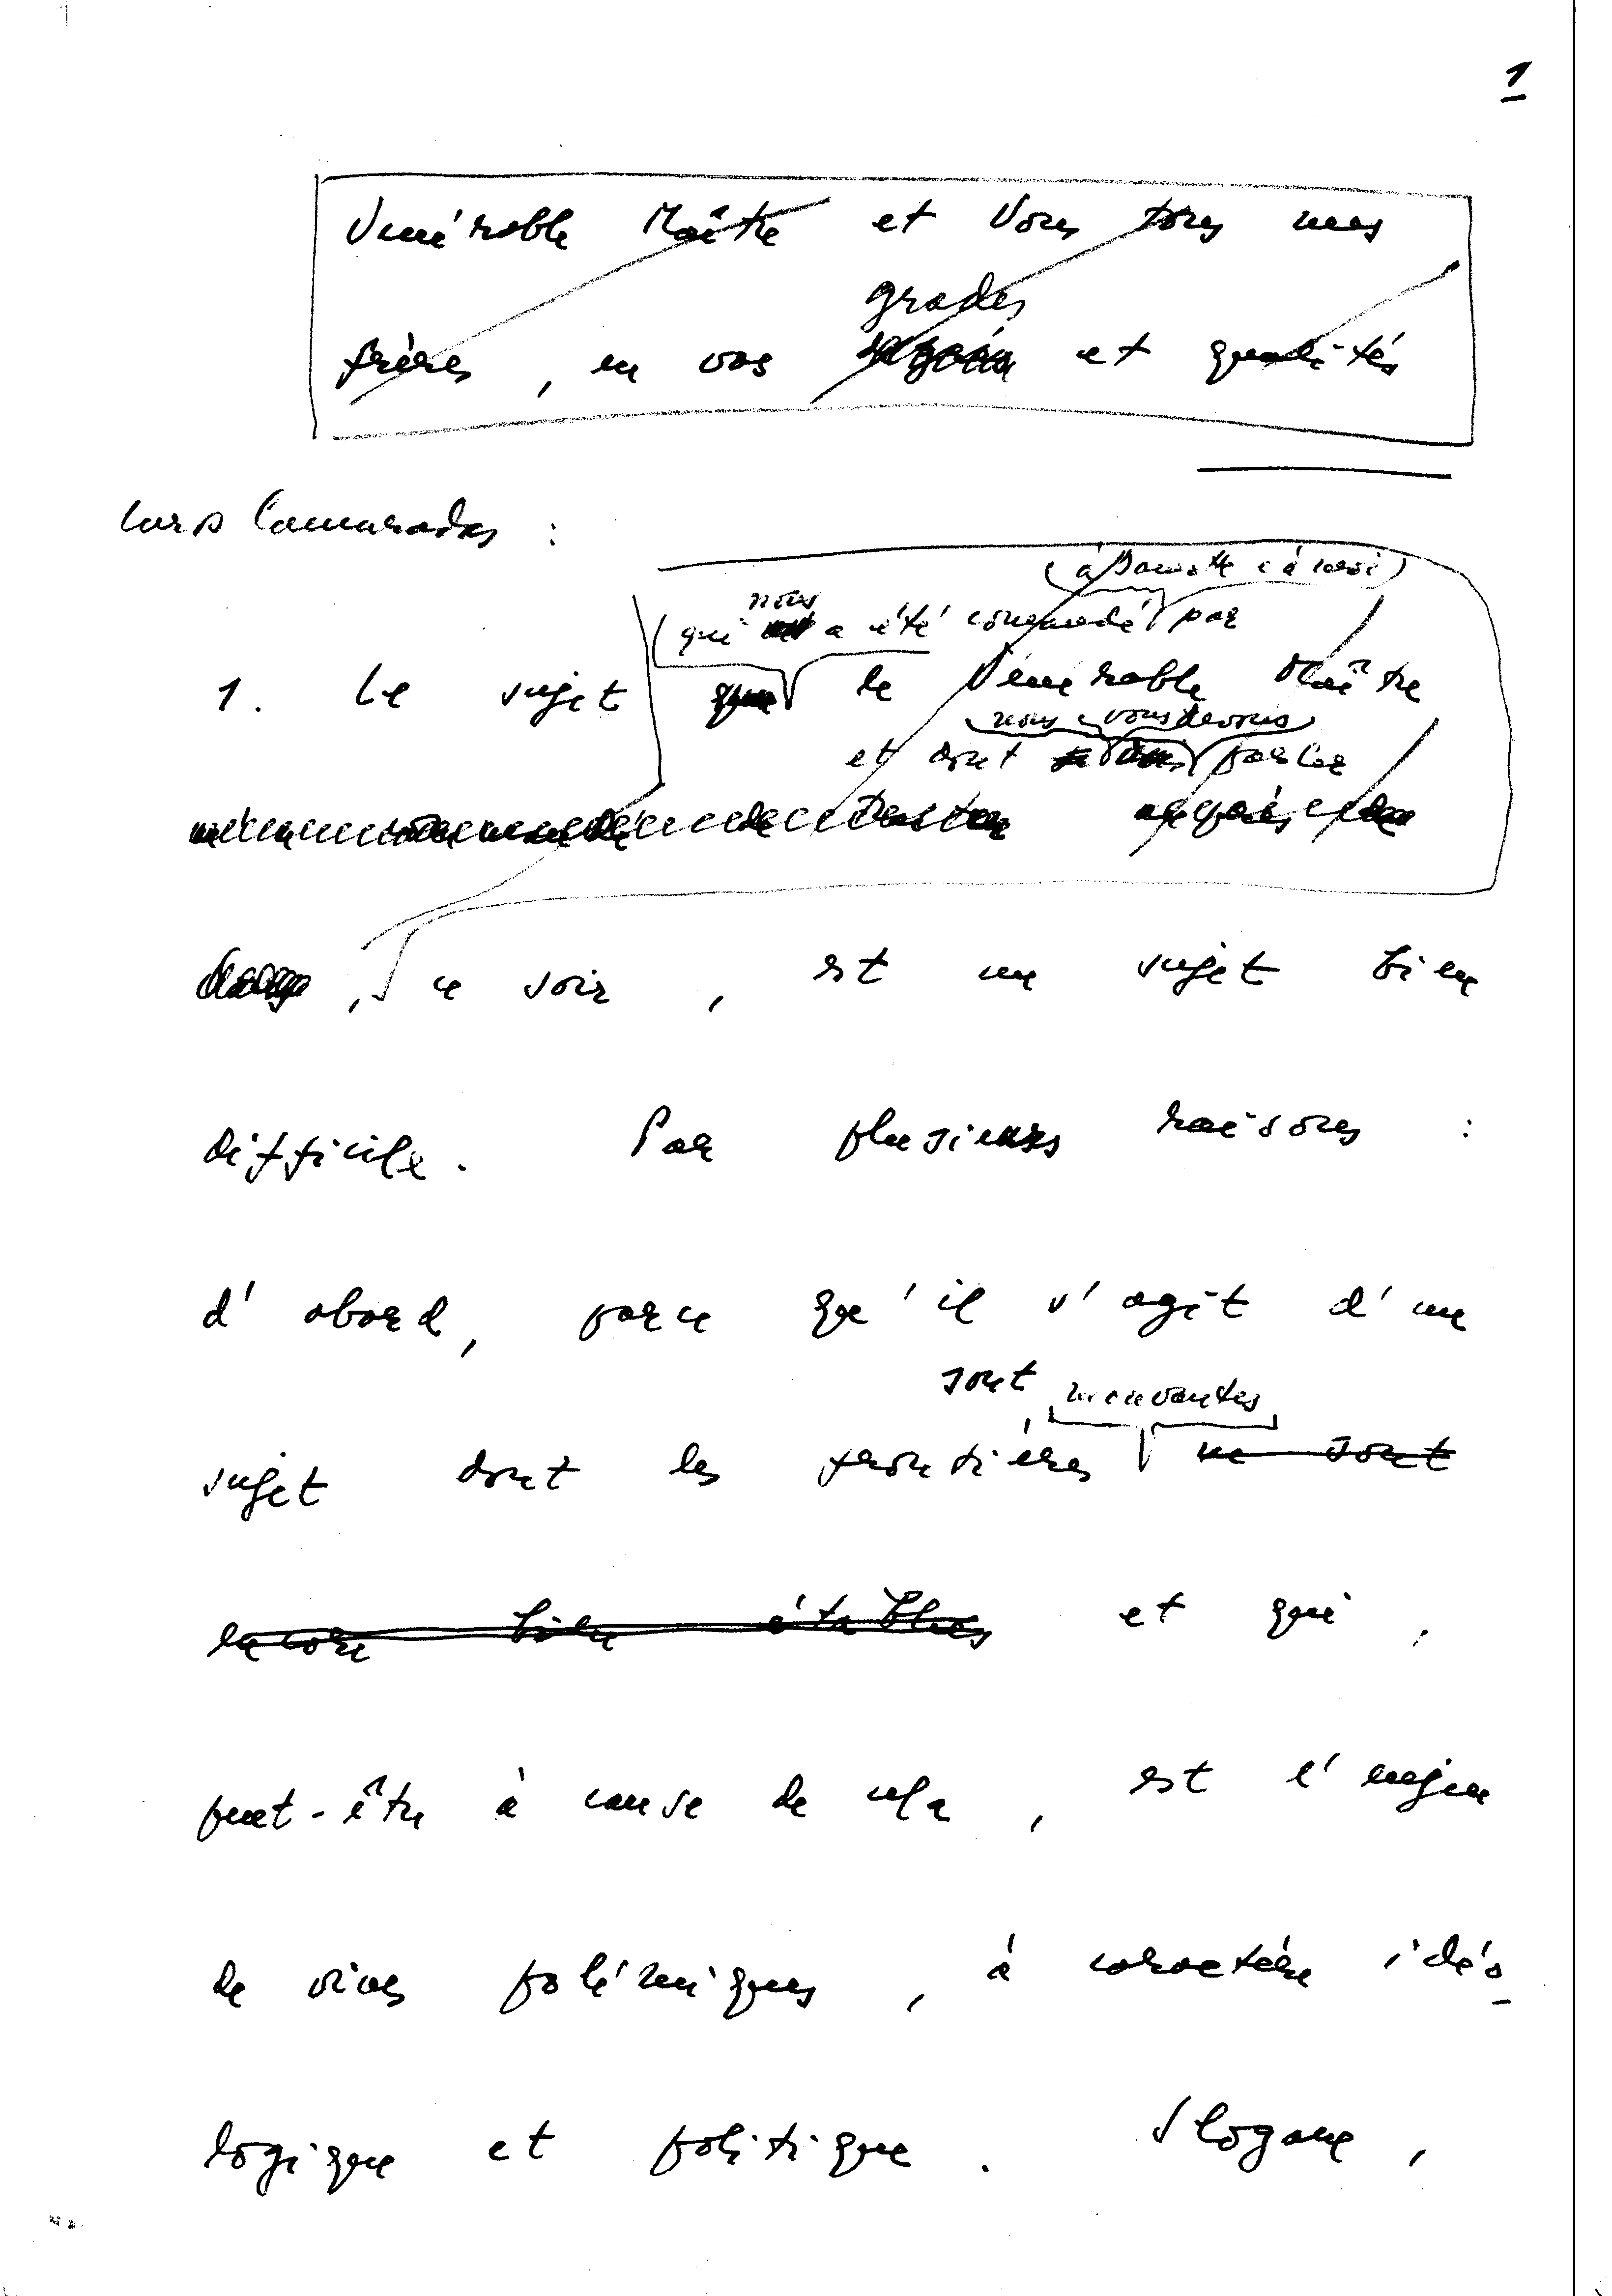 1
Vénérable Maître et Vous tous mes
grades
frères, en vos et qualités
Cars Camarades :
(à Danielle e à moi)
nous
(qui a été commandé par
1. Le sujet que le Vénérable Maître
nous vous devons
et dont parler
, ce soir, est un sujet bien
difficile. Par plusieurs raisons :
d'abord, parce qu'il s'agit d'un
sont mouvantes
sujet dont les frontières ne sont
encore bien établies et qui,
peut-être à cause de cela, est l'enjeu
de vives polémiques, à caractère idéo
logique et politique. Slogans,